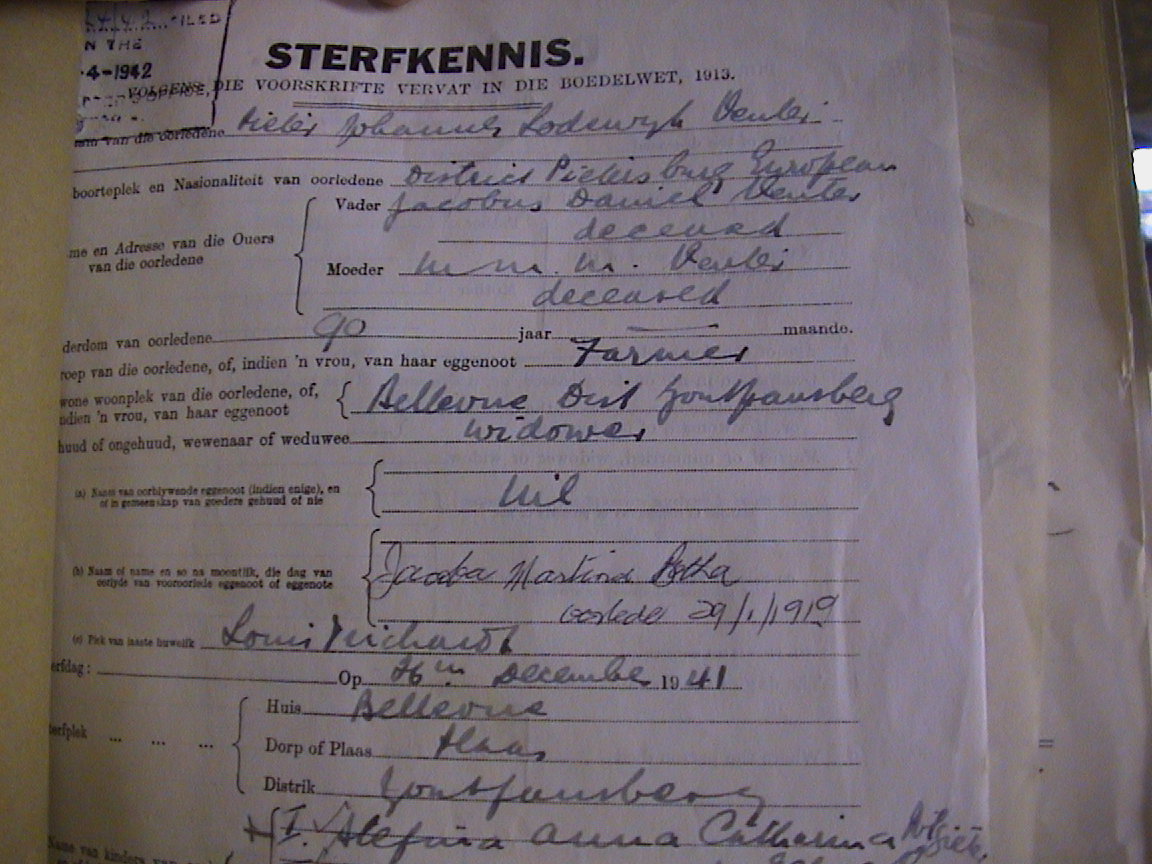 FILED
N THE
-4-1942
STERFKENNIS.
VOLGENS DIE VOORSKRIFTE VERVAT IN DIE BOEDELWET, 1913.
van die oorledene Pieter Johannes Lodewyk Venter
boorteplek en Nasionaliteit van oorledene District Pietersburg European
me en Adresse van die Ouers van die oorledene
Vader Jacobus Daniel Venter
deceased
Moeder M. M. M. Venter
deceased
derdom van oorledene 90 jaar — maande.
roep van die oorledene, of, indien 'n vrou, van haar eggenoot Farmer
wone woonplek van die oorledene, of,
ndien 'n vrou, van haar eggenoot
Bellevue Dist Zoutpansberg
huud of ongehuud, wewenaar of weduwee widower
(a) Naam van oorblywende eggenoot (indien enige), en
of in gemeenskap van goedere gehuud of nie
Nil
(b) Naam of name en so na moontlik, die dag van
oorlyde van vooroorlede eggenoot of eggenote
Jacoba Martina Botha
oorlede 29/1/1919
(c) Plek van laaste huwelik Louis Trichardt
erfdag: Op 26th December 1941
Huis Bellevue
terfplek ... ... ...
Dorp of Plaas Plaas
Distrik Zoutpansberg
Name van kinders van
I. Stefina Anna Catharina